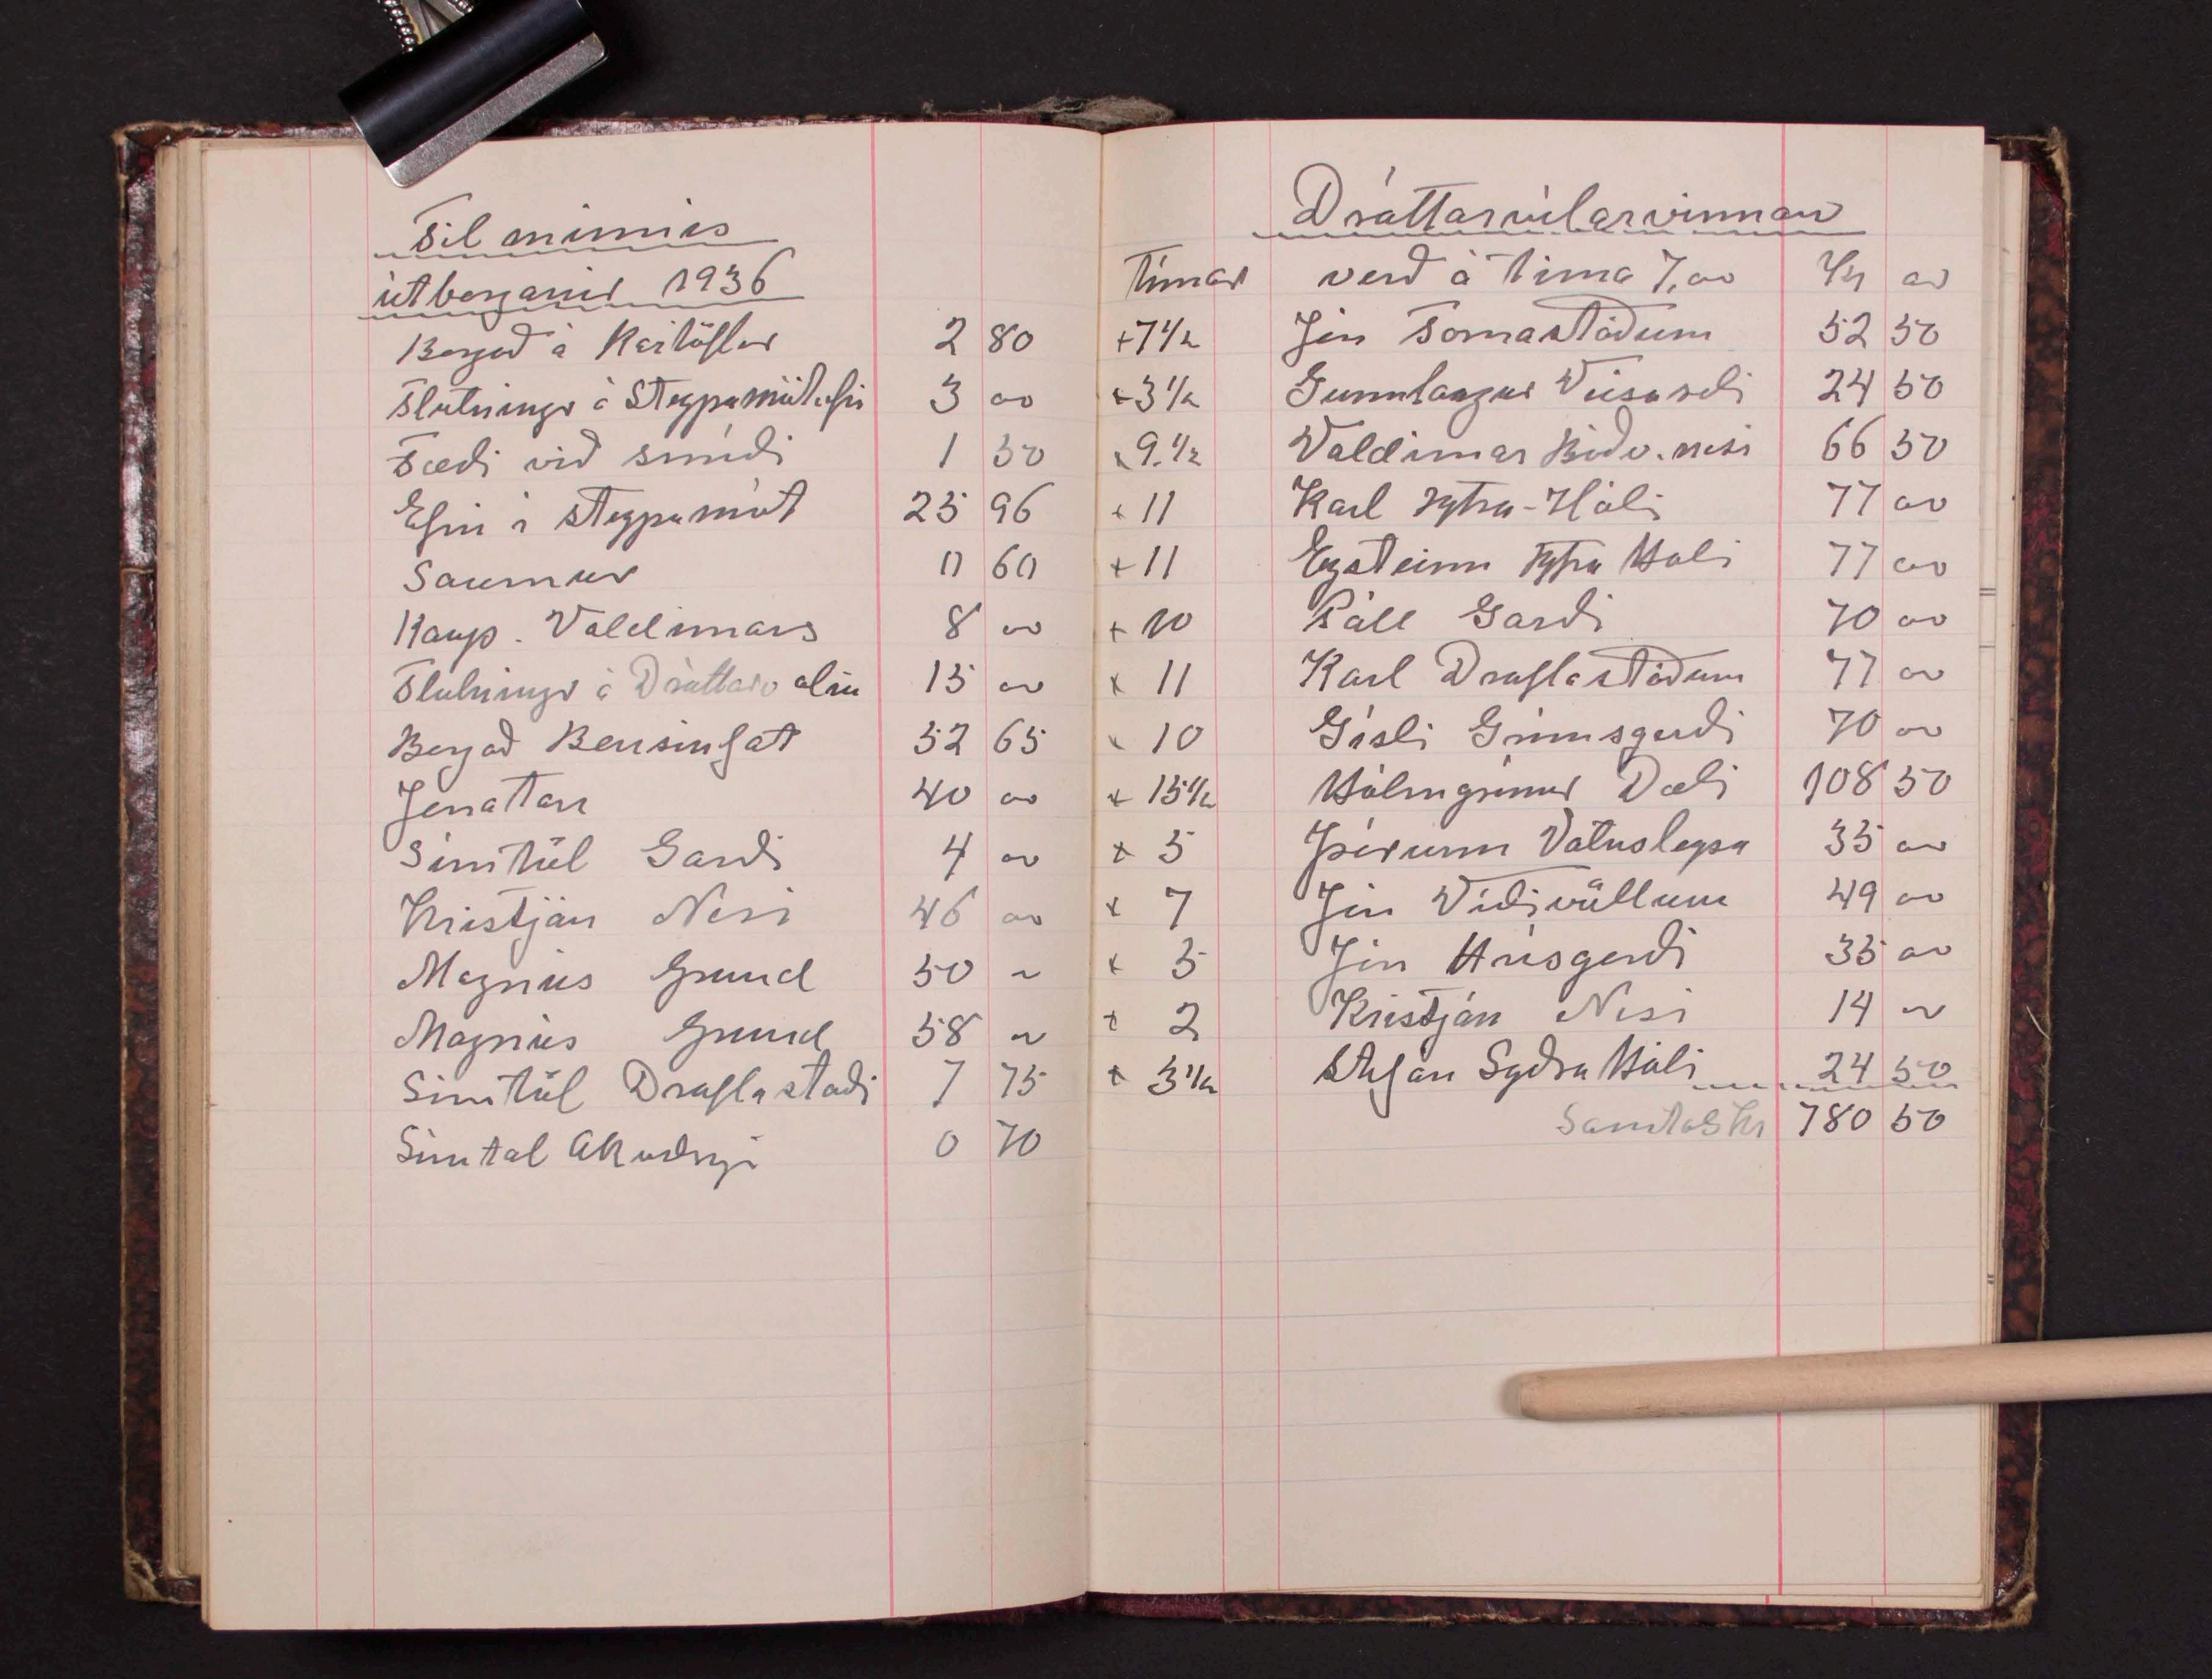 Til minnis
útborganir 1936
Borgað á Kartöflur 2 80
Flutningr á Steypumótaefni 3 00
Fæði við smíði 1 50
Efni í Steypumót 25 96
Saumur 0 60
Kaup. Valdimars 8 00
Flutningr á Dráttarv alin 15 00
Borgað Bensinfat 52 65
Jonatan 40 00
Símtöl Garði 4 00
Kristján Nesi 46 00
Magnús Grund 50 ~
Magnús Grund 58 ~
Símtöl Draflastaði 7 75
Símtal Akureyri 0 70
Dráttarvélarvinnan
Tímar verð á tíma 7,00 Kr au
+ 7 1/2 Jón Tornastöðum 52 50
+ 3 1/2 Gunnlaugur Veisuseli 24 50
x 9. 1/2 Valdimar Böðv.nesi 66 50
+ 11 Karl Ytra-Hóli 77 00
+ 11 Eysteinn Ytra Hóli 77 00
+ 10 Páll Garði 70 00
x 11 Karl Draflastöðum 77 00
x 10 Gísli Grímsgerði 70 00
x 15 1/2 Hólmgrímur Dæli 108 50
x 5 Þórunn Vatnsleysu 35 00
x 7 Jón Víðivöllum 49 00
x 5 Jón Hrísgerði 35 00
+ 2 Kristján Nesi 14 00
x 3 1/2 Stefán Syðra Hóli 24 50
Samtals Kr 780 50